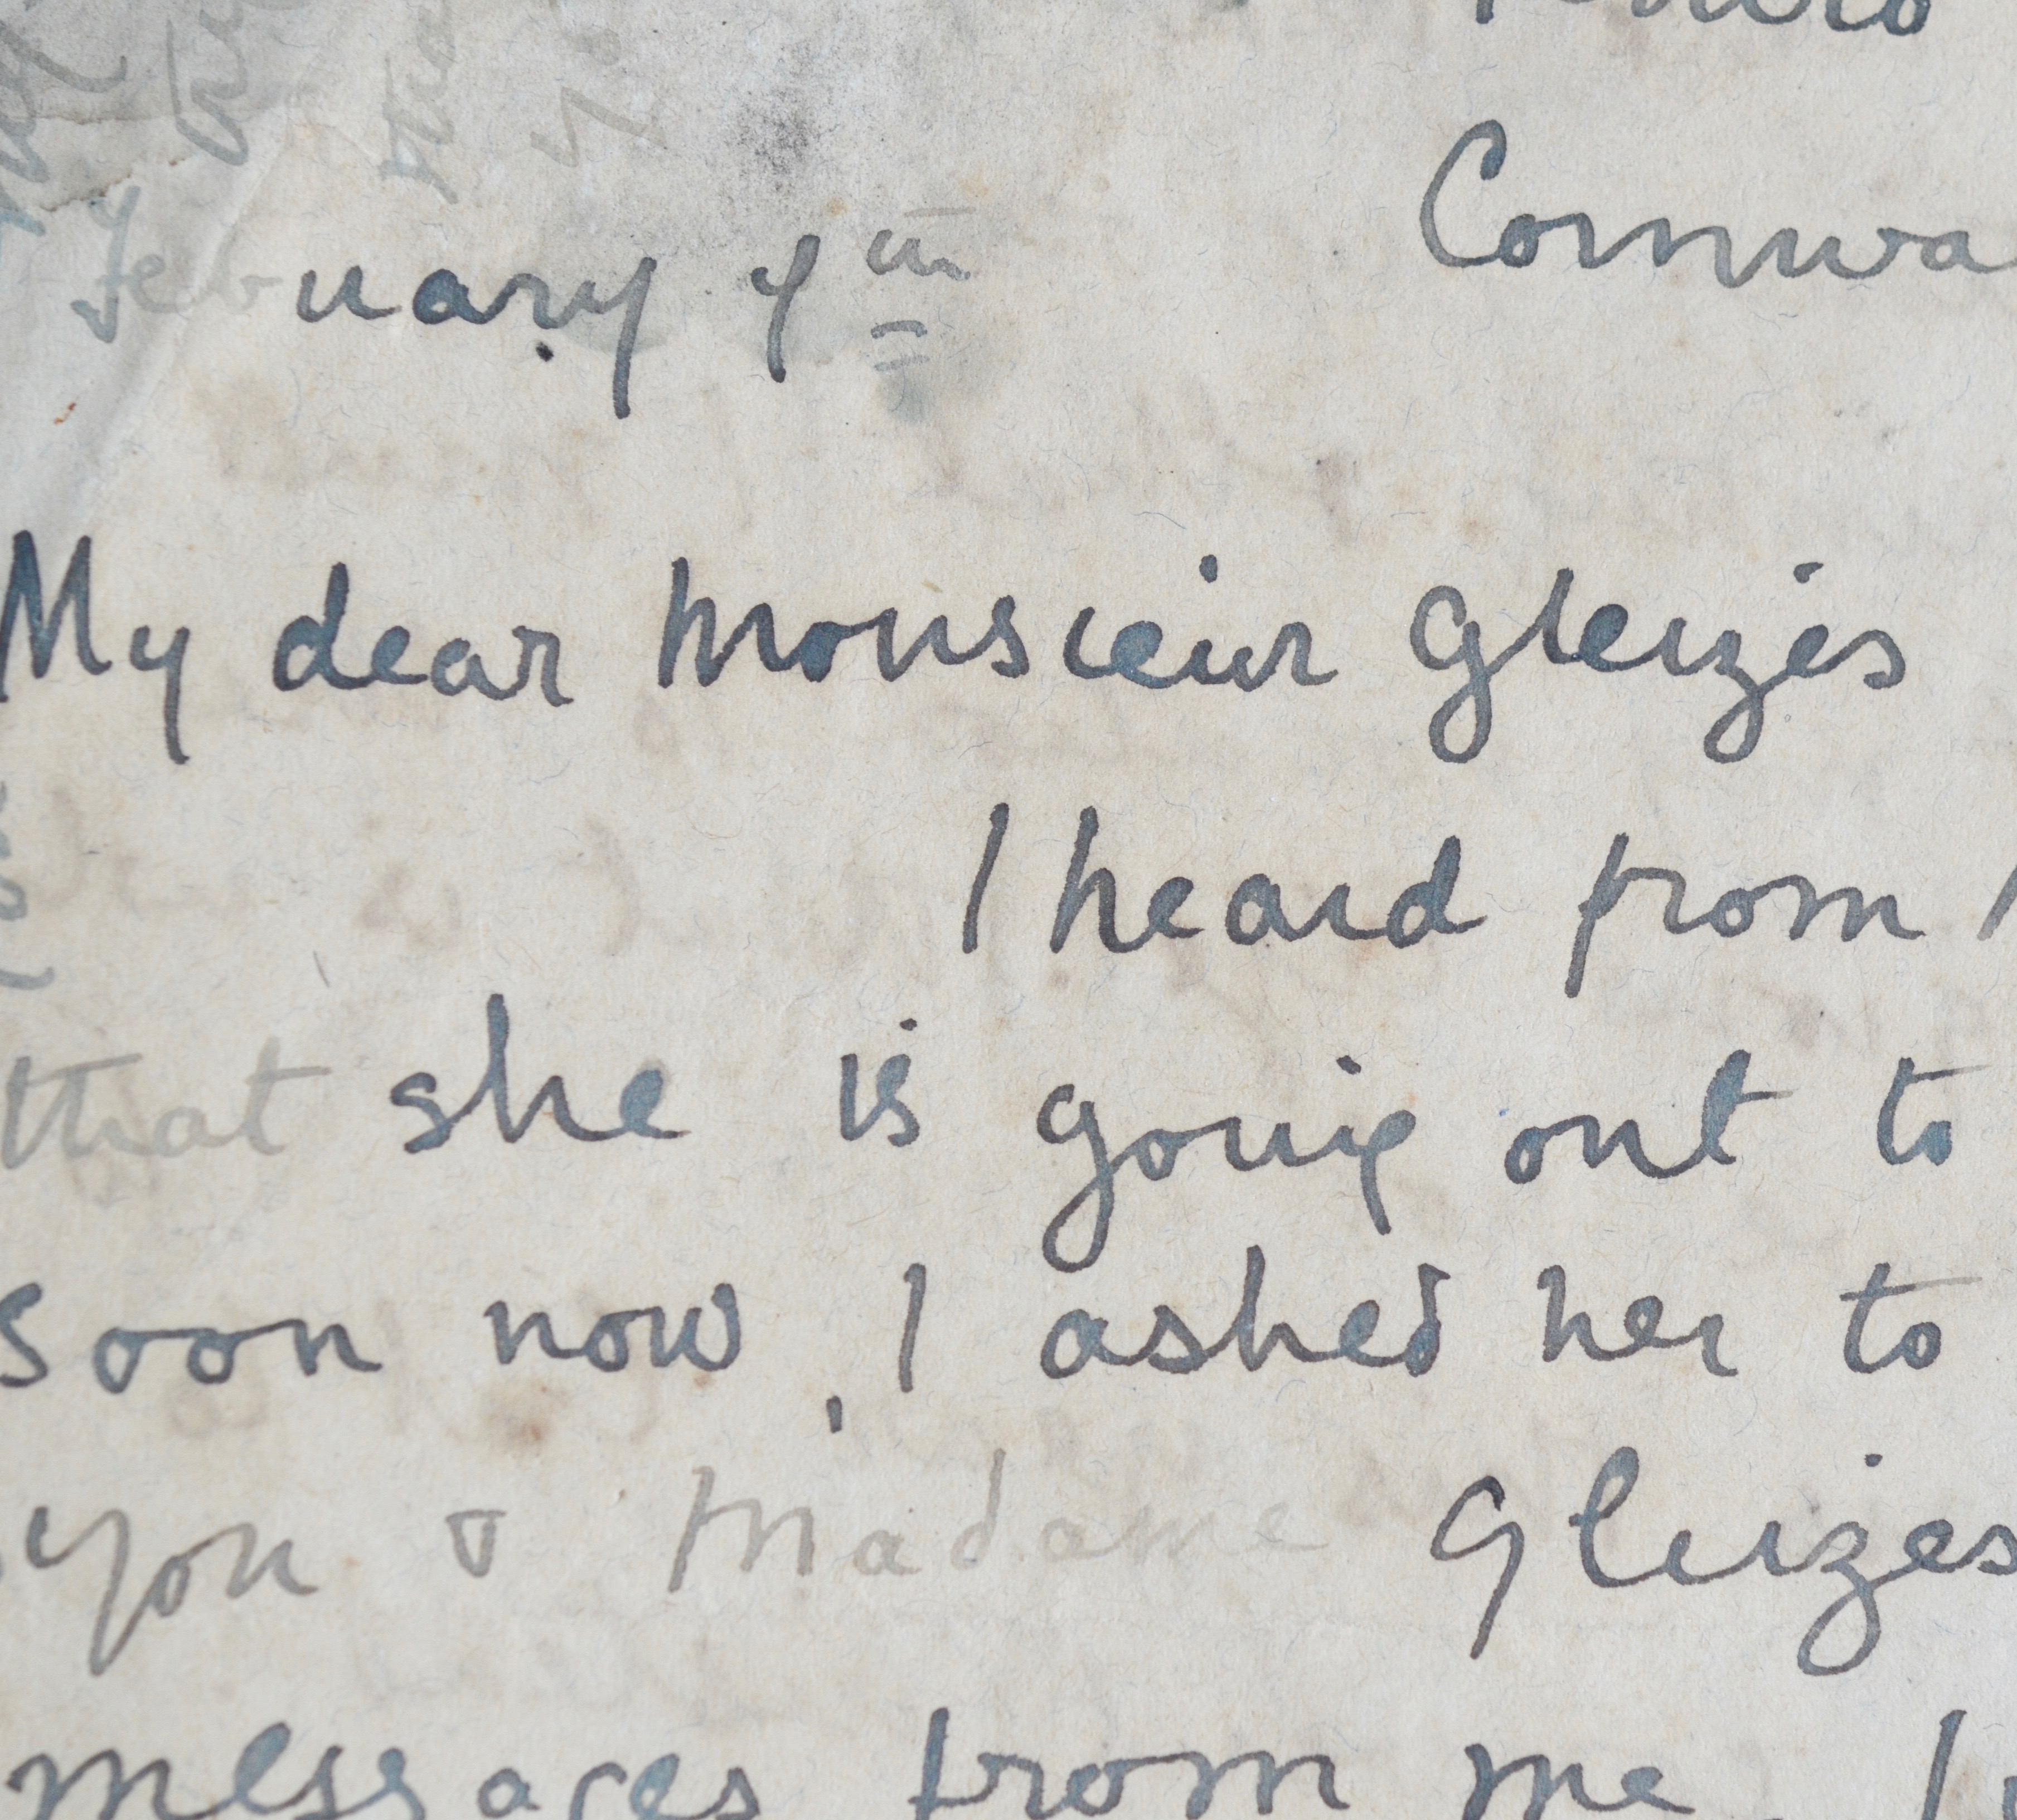 Cornwa
February 4th
My dear Monsieur Gleizes
I heard from
that she is going out to
soon now, I asked her to
you & Madame Gleizes
messages from me. I